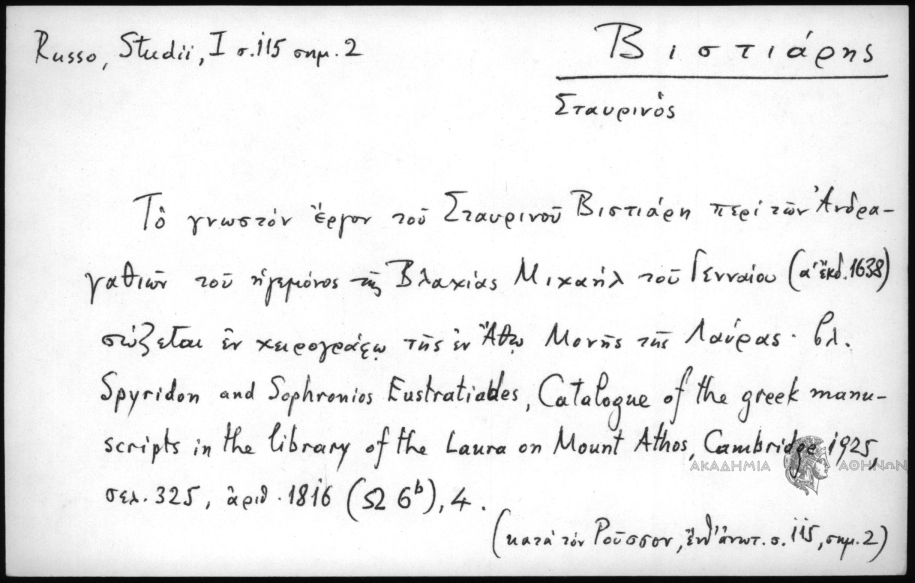 Russo, Studii, I σ. 115 σημ. 2
Βιστιάρης
Σταυρινὸς
Τὸ γνωστὸν ἔργον τοῦ Σταυρινοῦ Βιστιάρη περὶ τῶν Ἀνδρα-
γαθιῶν τοῦ ἡγεμόνος τῆς Βλαχίας Μιχαὴλ τοῦ Γενναίου (α' ἔκδ. 1638)
σώζεται ἐν χειρογράφῳ τῆς ἐν Ἄθῳ Μονῆς τῆς Λαύρας· βλ.
Spyridon and Sophronios Eustratiades, Catalogue of the greek manu-
scripts in the library of the Laura on Mount Athos, Cambridge 1925,
ΑΚΑΔΗΜΙΑ ΑΘΗΝΩΝ
σελ. 325, ἀριθ. 1816 (Ω 6b), 4.
(κατὰ τὸν Ροῦσσον, ἔνθ' ἀνωτ. σ. 115, σημ. 2)